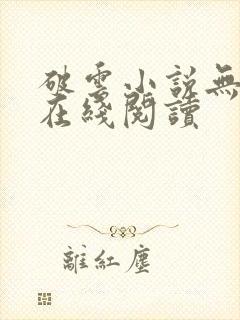 破雲小說無
在綫閱讀
離紅塵